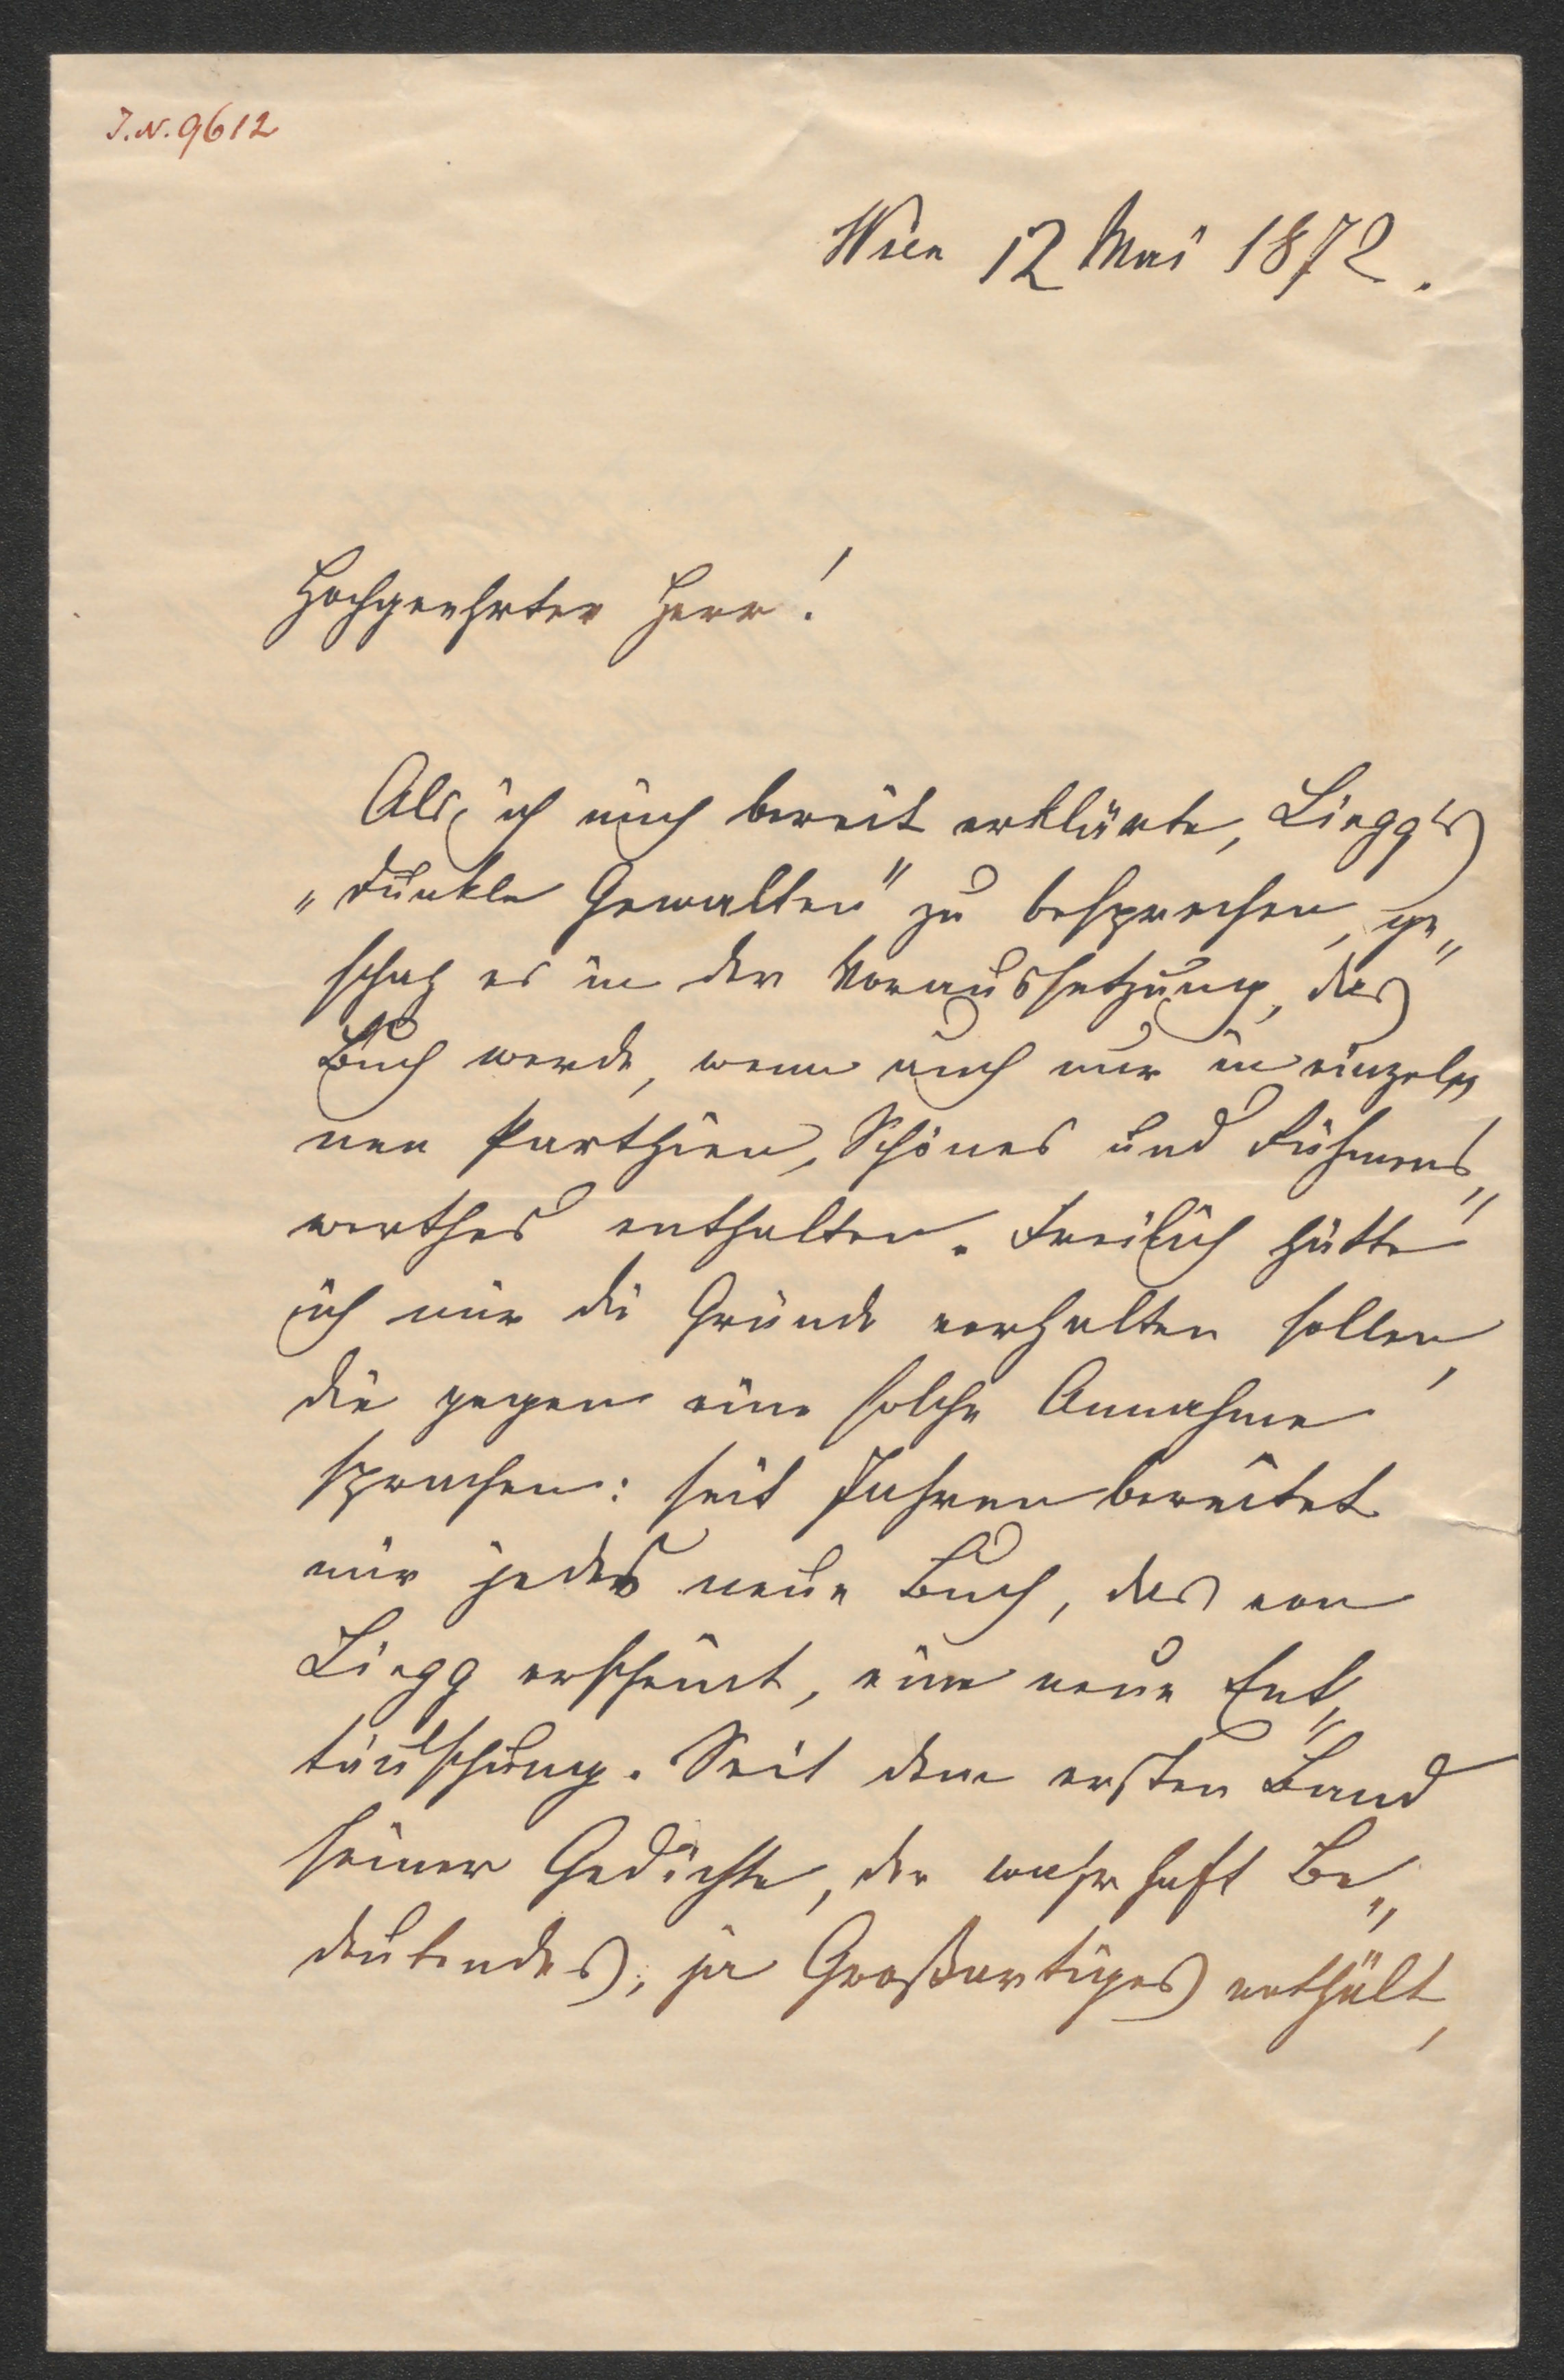 J.N. 9612
Wien 12 Mai 1872.
Hochgeehrter Herr!
Als ich mich bereit erklärte, Lingg's
„dunkle Gewalten" zu besprechen, ge„
schah es in der Voraussetzung, das
Buch werde, wenn auch nur in einzel„
nen Parthien, Schönes und Rühmens„
werthes enthalten. Freilich hätte
ich mir die Gründe vorhalten sollen,
die gegen eine solche Annahme
sprachen: seit Jahren bereitet
mir jedes neue Buch, das von
Lingg erscheint, eine neue Ent„
täuschung. Seit dem ersten Band
seiner Gedichte, der wahrhaft Be„
deutendes, ja Großartiges enthält,